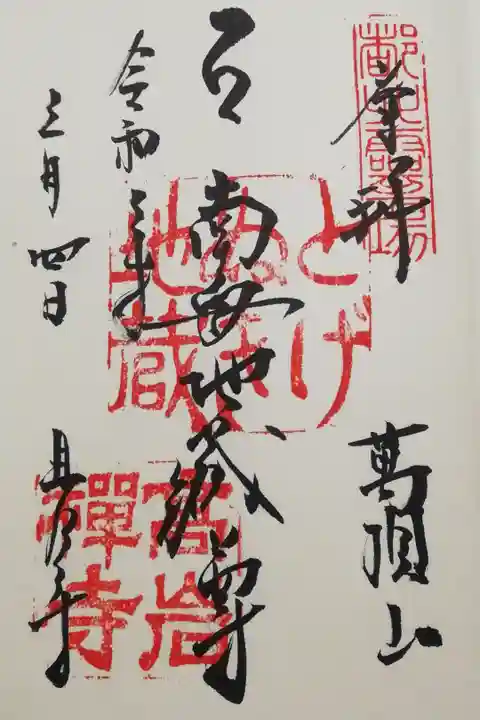 奉拝
萬頂山
とげ
ぬき
地蔵
南無地蔵尊
令和三年
三月四日
高岩寺
高岩
禪寺